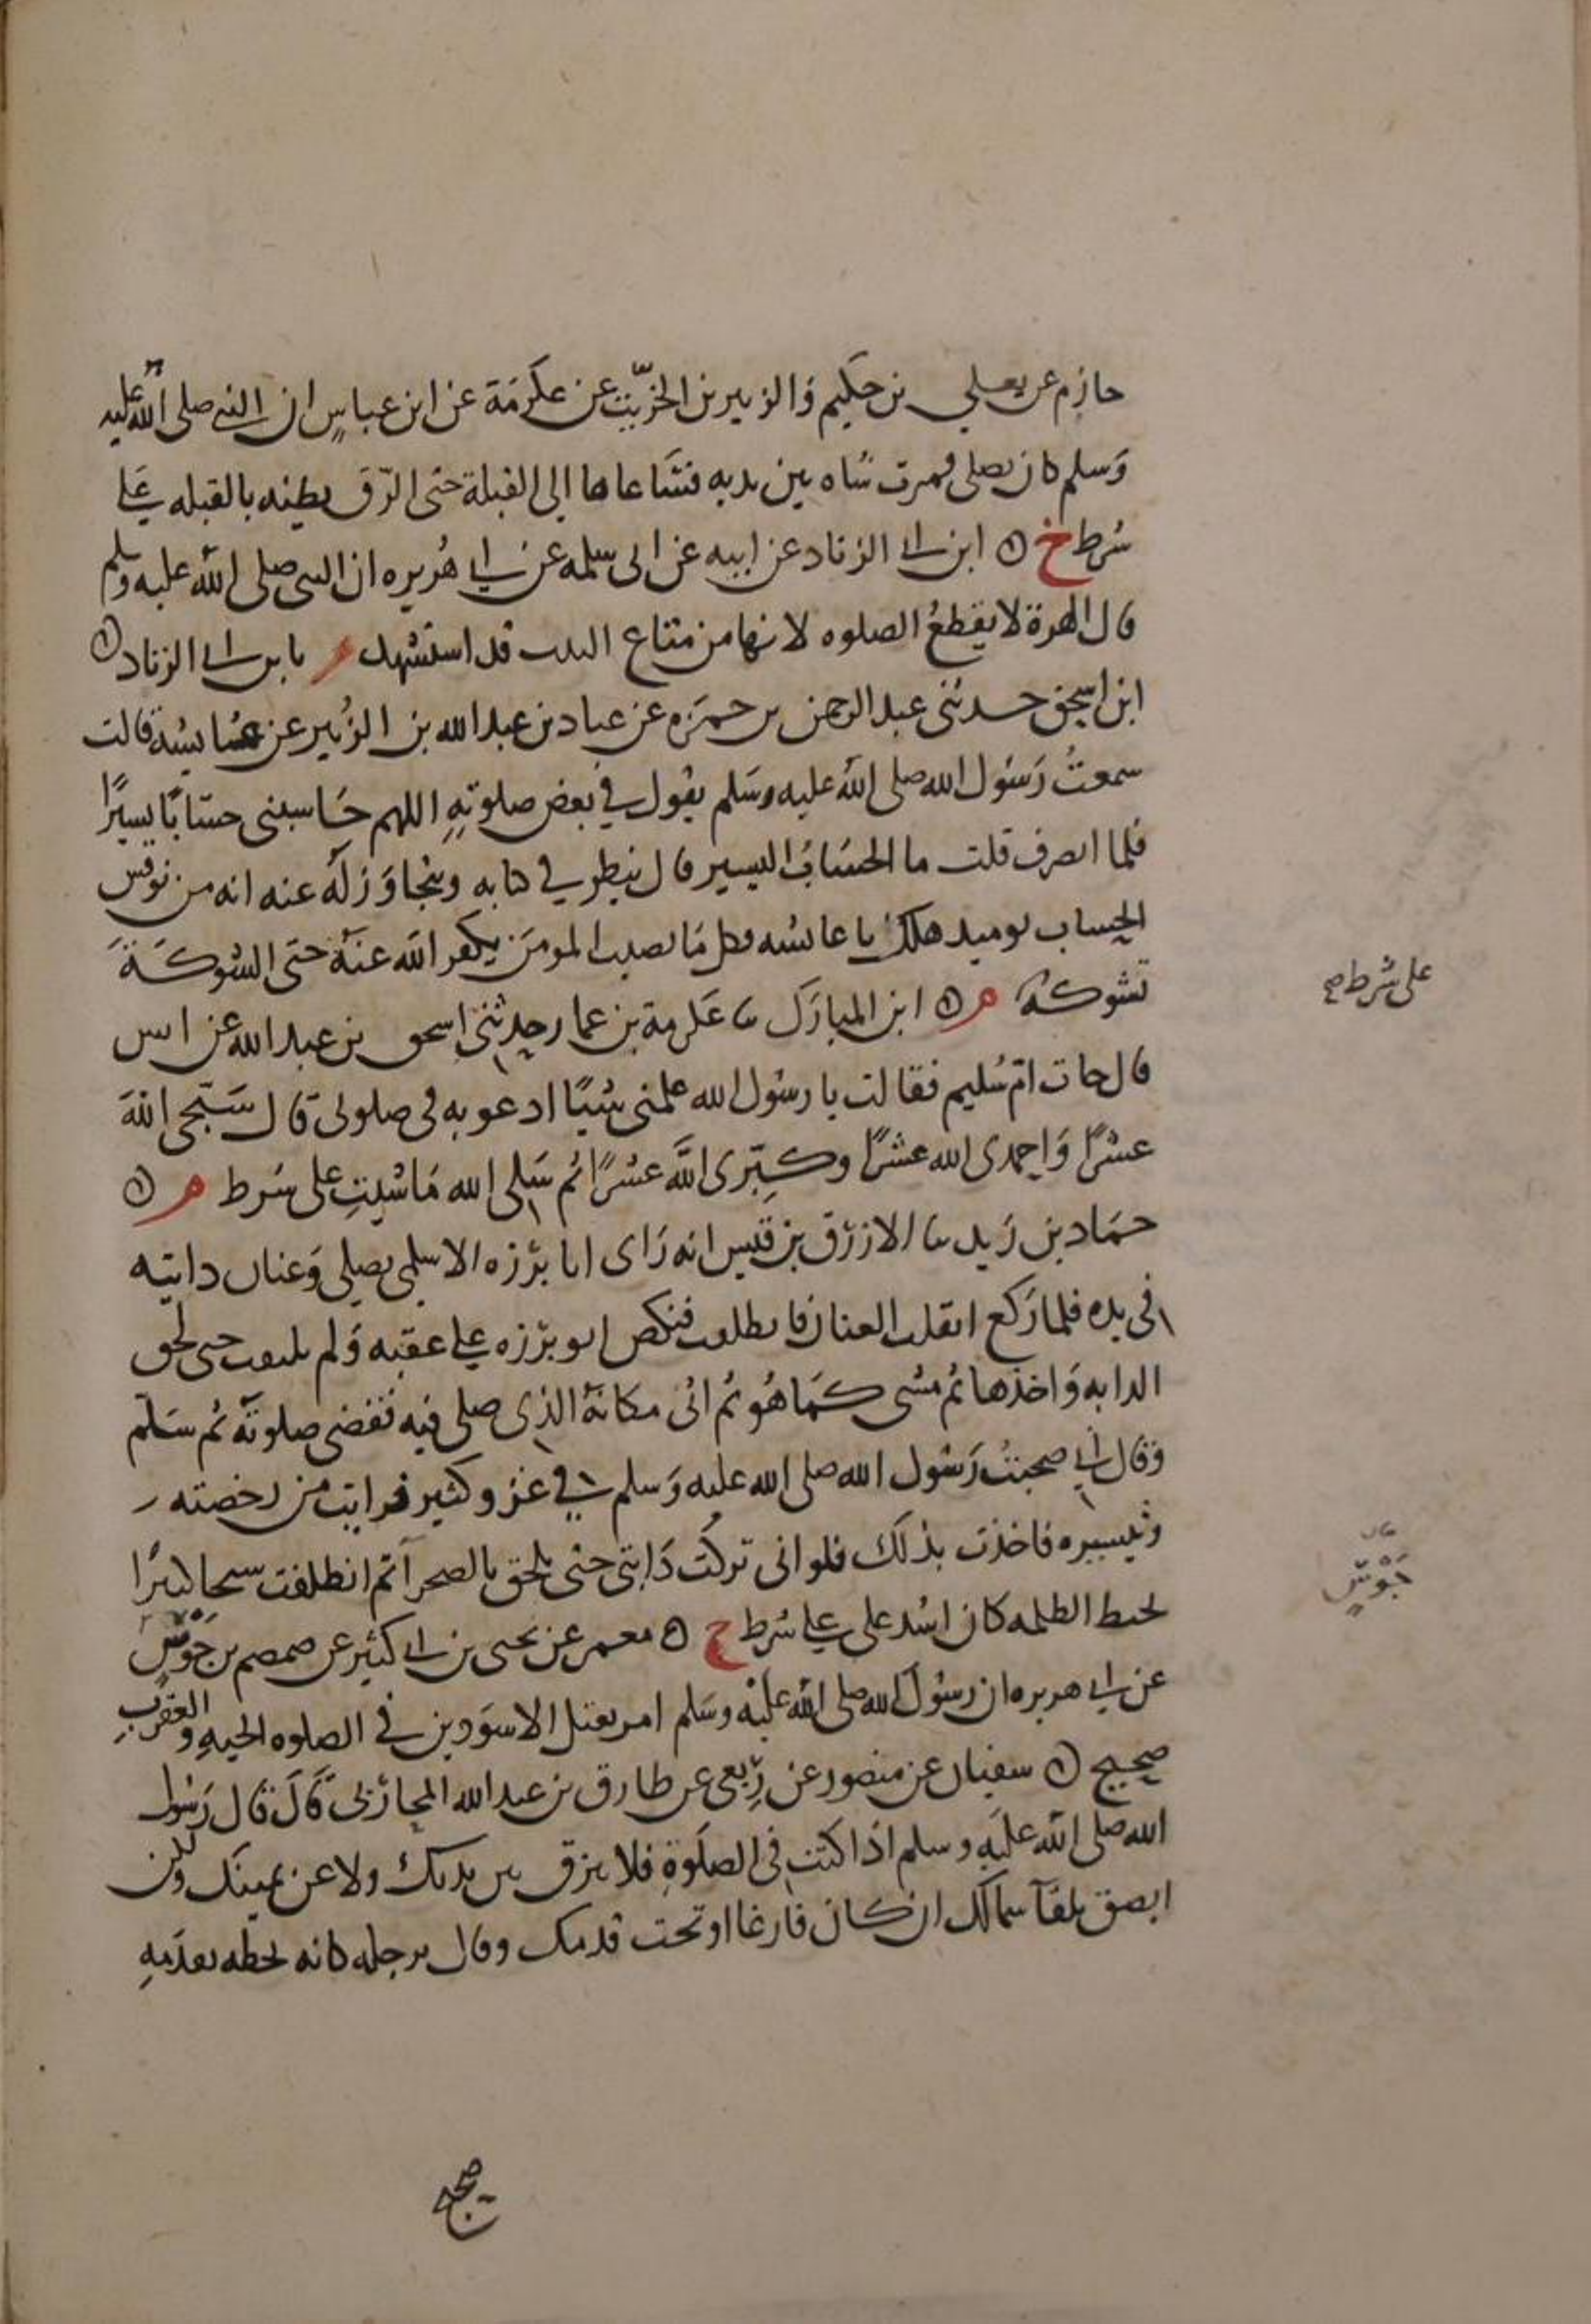 حازم عن يعلي بن حكيم وَالزبير بن الخرّيت عن عكرمَة عن ابن عباسٍ ان النبي صلى الله عليه
وَسلم كان يصلى فمرت شاه بين يديه فسَاعاها الي القبلة حتى الزق بطنه بالقبله علي
شرط خ ۞ ابن ابي الزناد عن ابيه عن ابى سلمه عن ابي هُريره ان النبى صلى الله عليه وسلم
قال الهرة لا يقطعُ الصلوه لانها من متاع البيت قد استشهد م بابن ابي الزناد ۞
ابن اسحق حدثنى عبد الرحمن بن حمزه عن عباد بن عبد الله بن الزُبير عن عشايشة قالت
سمعتُ رَسُول الله صلى الله عليه وسَلم يقول في بعض صلوتهِ اللهم حَاسبنى حسَابًا يسيرًا
فلما انصرف قلت ما الحسَابُ اليسير قال ينظر في كتابه ويتجاوَز لَه عنه انه من نوقس
الحساب يوميد هلك يا عائشه وكل مَا يصيب المومنَ يكفر الله عنهُ حتى الشوكَةَ
تشوكهُ م ۞ ابن المبارَك ثنا عَكرمة بن عمار حدثنى اسحق بن عبد الله عن انس
قال جات امّ سُليم فقالت يا رسُول الله علمنى شيًا ادعو به فى صلوتى قال سَبّحى اللهَ
عشرًا وَاحمدى الله عشرًا وكبّرى اللَّه عشرًا ثم سَلى الله مَا شيتِ على شرط م ۞
حمَاد بن زَيد ثنا الازرَق بن قيس انه رَاى ابا برْزه الاسلمى يصلي وَعنان دابته
فى يده فلما رَكع انفلت العنان فانطلقت فنكص ابو برْزه علي عقبه وَلم يلتفت حتى لحق
الدابه وَاخذها ثم مشى كمَا هُو ثم اتى مكانهُ الذى صلى فيه فقضى صلوتَه ثم سَلم
وقال انى صحبتُ رَسُول الله صلى الله عليه وَسلم في غزو كثير فرايت من رخصته
وتيسيره فاخذت بذلك فلو انى تركت دَابتى حتى يلحق بالصحرآ ثم انطلقت شيخا كبيرًا
لخبط الظلمه كان اشد على علي شرط خ ۞ معمر عن يحيى بن ابي كثير عن ضمضم بن جَوْسٍ
عن ابي هريره ان رسُول الله صلى الله عليه وسَلم امر بقتل الاسوَدين في الصلوه الحيهِ والعقربِ
صحيح ۞ سفيان عن منصور عن رِبعى عن طارق بن عبد الله المحاربى قَالَ قال رَسُول
الله صلى الله عليه وسلم اذا كنت فى الصلَوةِ فلا يبزق بين يديك ولا عن يمينك ولكن
ابصق تلقآ شمالك ان كان فارغا او تحت قدمك وقال برجله كانه يحطه بقدمهِ
على شرط م
جَوْسٍ
صحيح